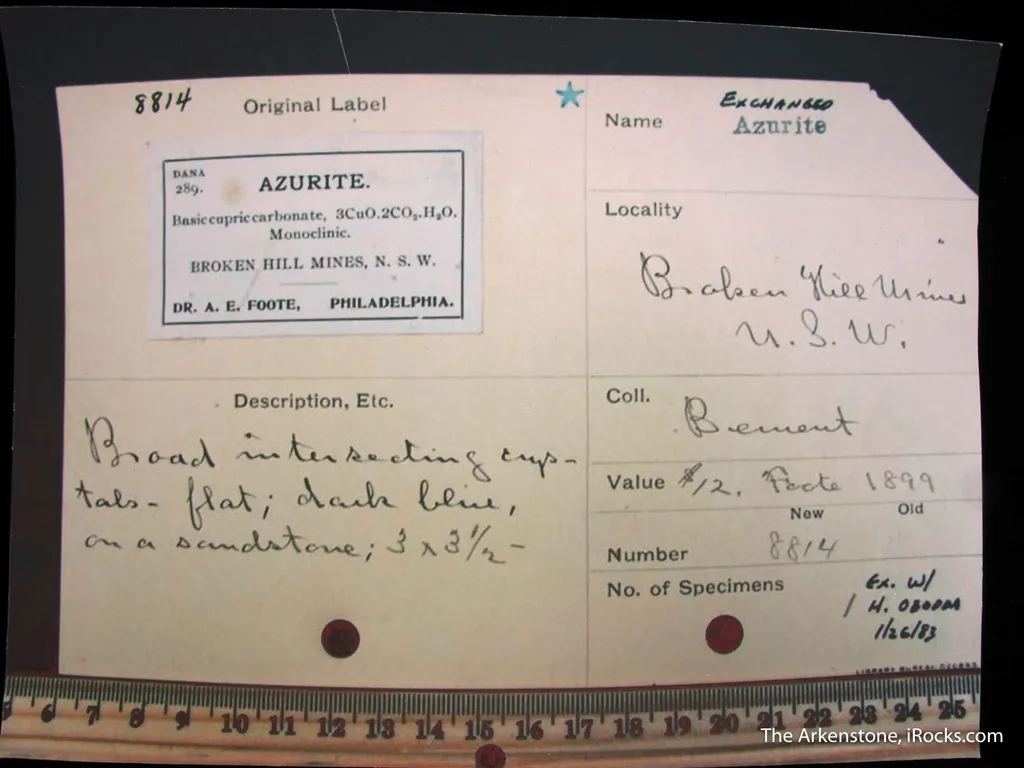 8814
Original Label
DANA
289.
AZURITE.
Basic cupric carbonate, 3CuO.2CO₂.H₂O.
Monoclinic.
BROKEN HILL MINES, N. S. W.
DR. A. E. FOOTE, PHILADELPHIA.
Description, Etc.
Broad intersecting crys-
tals - flat; dark blue,
on a sandstone; 3 x 3½ -
EXCHANGED
Name Azurite
Locality
Broken Hill Mines
N. S. W.
Coll. Bement
Value $12. Foote 1899
New Old
Number 8814
No. of Specimens 1
Ex. W/
H. OBODA
1/26/83
LIBRARY BUREAU
6 7 8 9 10 11 12 13 14 15 16 17 18 19 20 21 22 23 24 25
The Arkenstone, iRocks.com